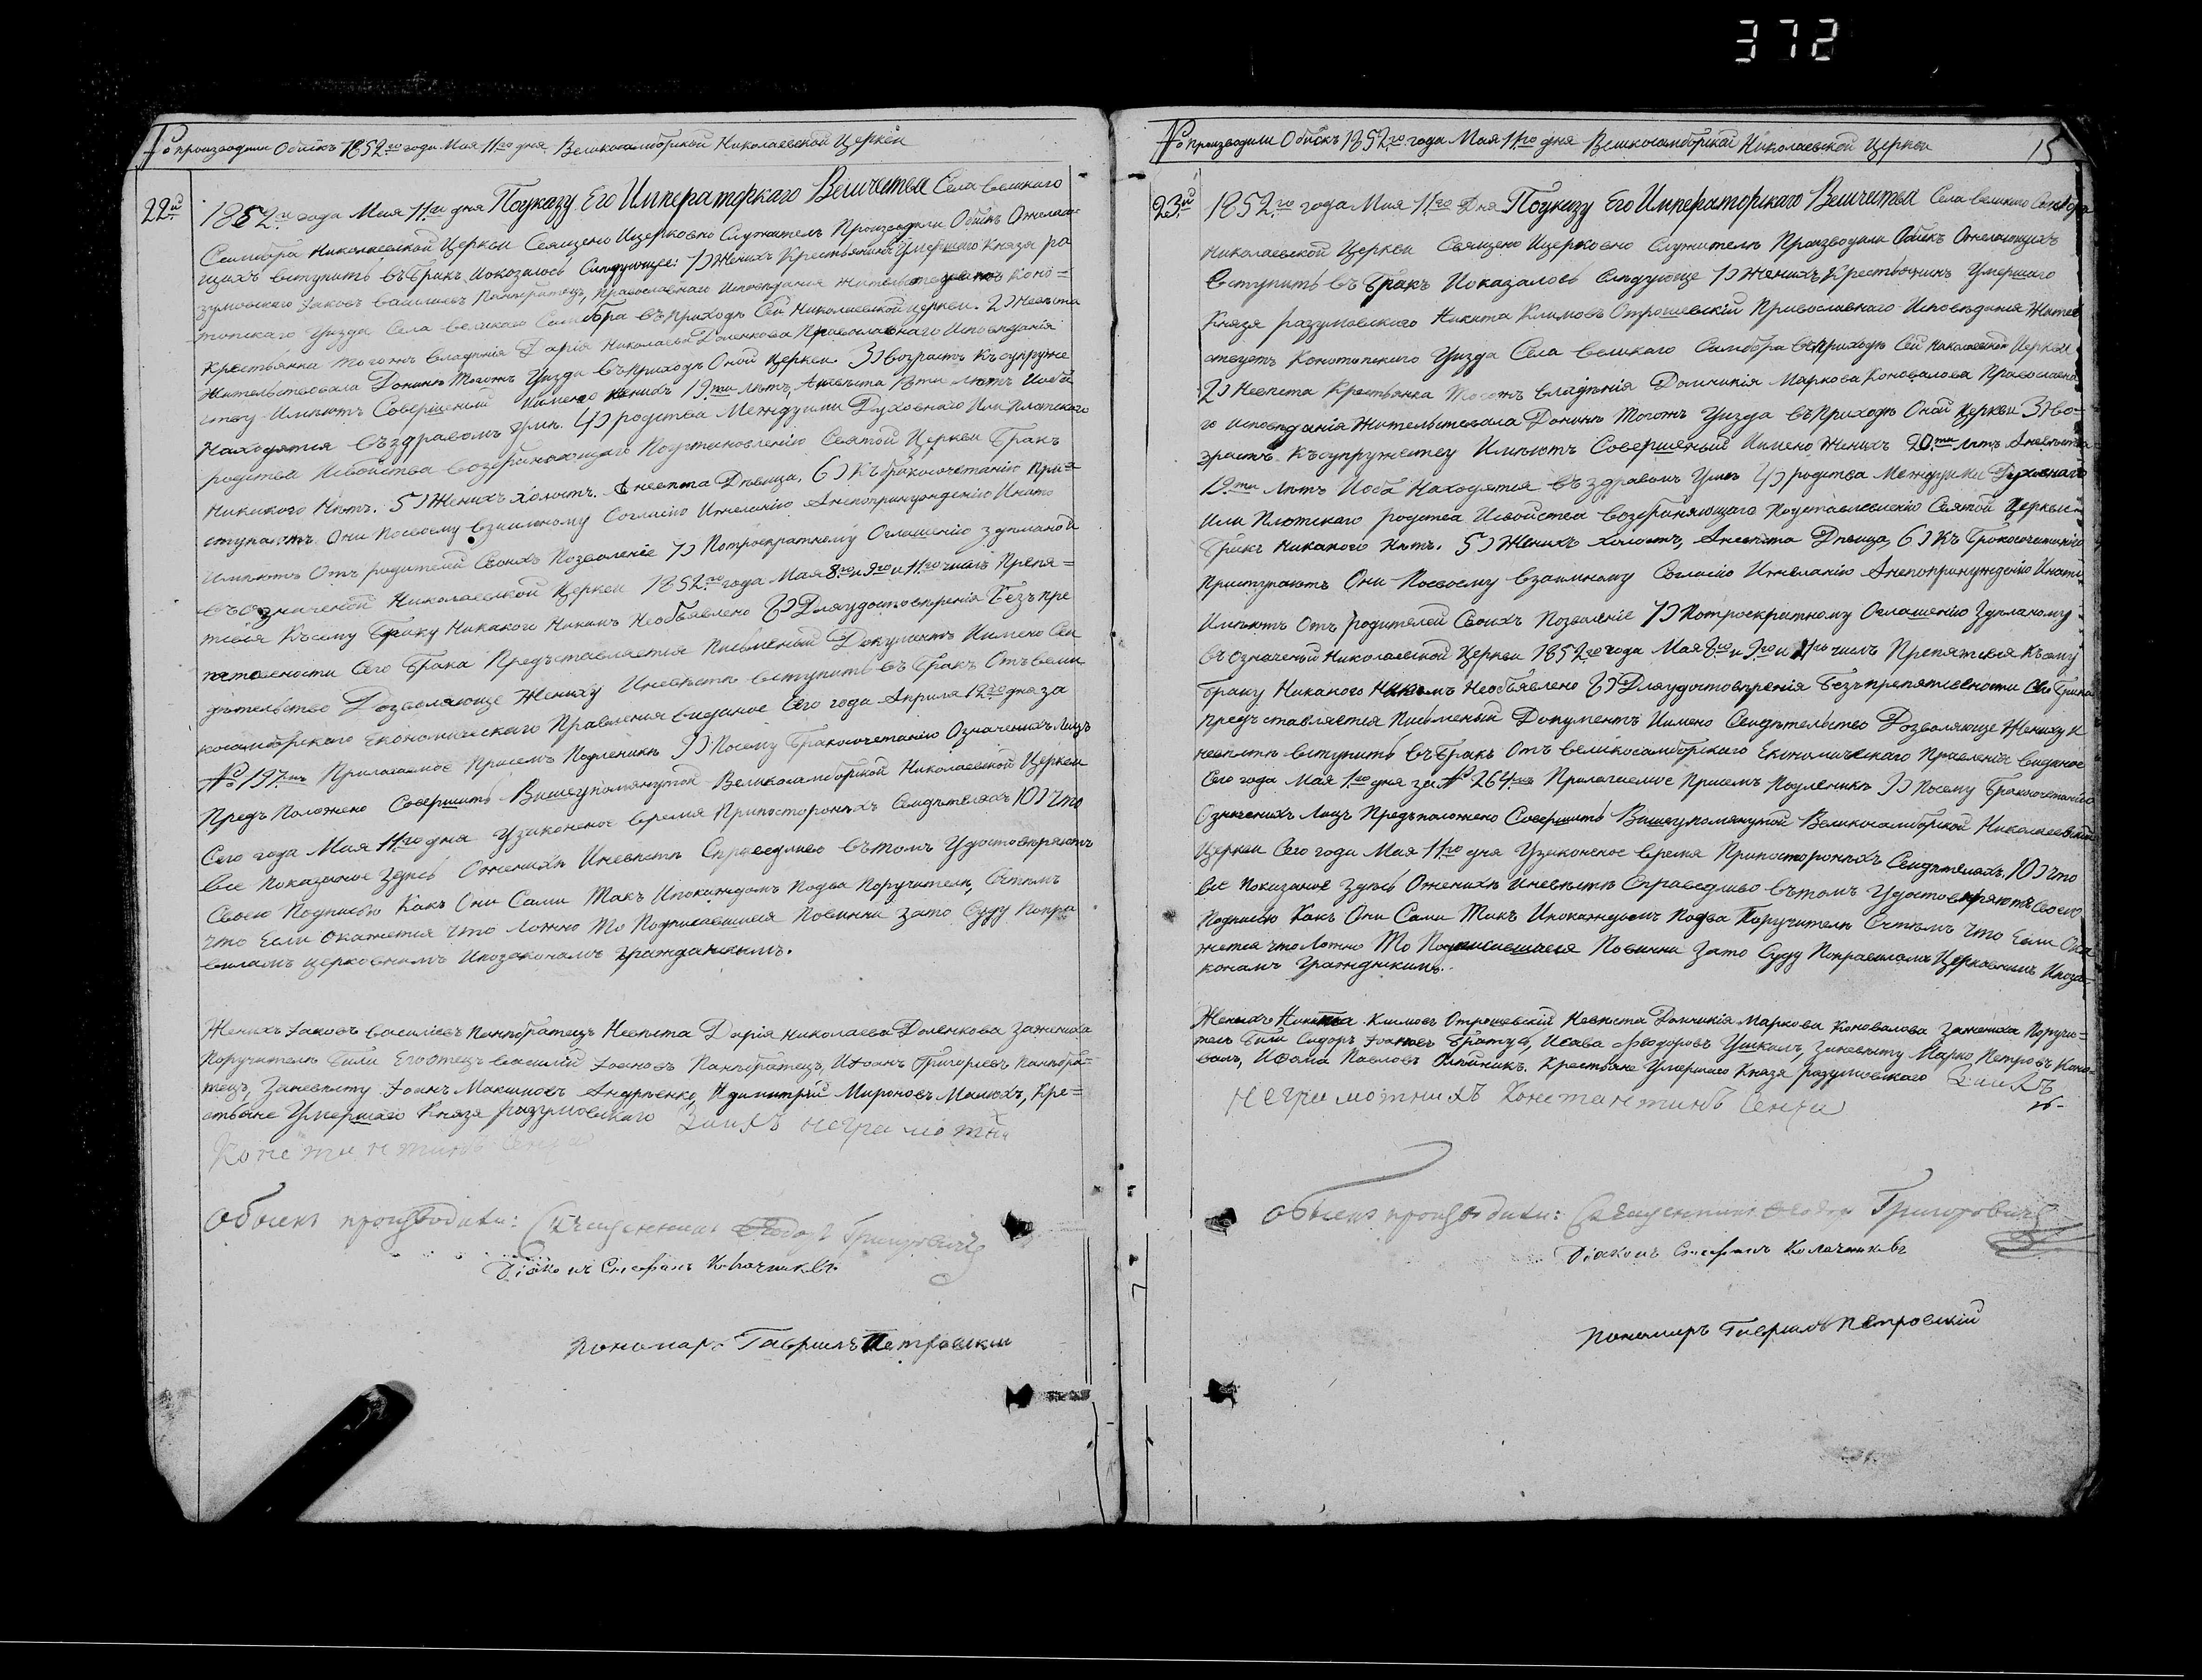 372
№ производили Обыскъ 1852го года Мая 11го дня Великосамборской Николаевской Церкви
22й
1852го года Мая 11го дня Поуказу Его Императорскаго Величества Села великаго
Самбора Николаевской Церкви Священо Ицерковно Служатель Производили Обыскъ Ожелаю-
щихъ вступить въбракъ, Иоказалось Слѣдующее: 1) Женихъ Крестьянинъ Умершаго Князя ра
зумовскаго Іаковъ василиевъ Панибратецъ, Православнаго Исповѣданія жительствуетъ Коно-
топскаго Уизда Села великаго Самбора въприходѣ Сей Николаевской церкви. 2) Невѣста
Крестьянка Тогожъ владѣнія Дарія Николаева Доленкова Православнаго Исповѣданія
Жительствовала Донынѣ Тогожъ Уизда въприходѣ Оной Церкви. 3) возрастъ Късупруже
ству Имѣютъ Совершеный Имено женихъ 19ти лѣтъ, Аневѣста 18ти лѣтъ Иоба
Находятся въздравомъ умѣ. 4) родства Междуими Духовнаго Или Плотскаго
родства Исвойства возбраняющаго Поустановленію Святой Церкви Бракъ
Никакого Нѣтъ. 5) Женихъ холостъ. Аневѣста Дѣвица, 6) Къбракосочетанію При-
ступаютъ Они Посвоему взаимному Согласію Ижеланію Анепопринужденію Инато
Имѣютъ Отъ родителей Своихъ Позволеніе 7) Потроекратному Оглашенію здѣланой
въозначеной Николаевской Церкви 1852го года Мая 8го и 9го и 11го числъ Препя-
тсвія Късему браку Никакого Никимъ Необъявлено 8) Дляудостовѣренія Безъпре
пятсвености Сего брака Предъставляется Письменый Документъ Имено Сви
дѣтельство Дозволяюще Жениху Иневѣстѣ вступить въ бракъ Отъ вели
косамборскаго Економическаго Правления виданое Сего года Априля 12го дня за
№ 197мъ Прилагаемое Присемъ Подленикѣ 9) Посему бракосочетанію Означенихъ Лицъ
Предъ Положено Совершить Вишеупомянутой Великосамборской Николаевской Церкви
Сего года Мая 11го дня Узаконеное время Припосторонихъ Свидѣтеляхъ 10) Что
все Показаное Здѣсь Оженихѣ Иневѣстѣ Справедливо вътомъ Удостовѣряютъ
Своею Подписью Какъ Они Сами Такъ Ипокаждомъ Подва Поручителя, Сътѣмъ
что Если Окажется что Ложно То Подписавшиися Повинни Зато Суду Попра
виламъ церковнимъ Ипозаконамъ гражданскимъ.
Женихъ Іаковъ василіевъ Панибратецъ Невѣста Дарія Николаева Доленкова Зажениха
Поручителѣ били Егоотецъ василій Іоановъ Панибратецъ, Иіоанъ Григориевъ Панибра-
тецъ, Заневѣсту Іоанъ Максимовъ Андрѣенко, Идимитрій Мироновъ Манюхъ, Кре-
стьяне Умершаго Князя разумовскаго Заихъ неграмотнихъ
Константинъ
Обыскъ производили: Священникъ Феодоръ Григоровичъ
Діаконъ Стефанъ
Пономаръ Гавриилъ Петровский
№ производили Обыскъ 1852го года Мая 11го дня Великосамборской Николаевской Церкви 15
23й
1852го года Мая 11го Дня Поуказу Его Императорскаго Величества Села великаго Самбора
Николаевской Церкви Священо Ицерковно Служителѣ Производили Обискъ Ожелающихъ
вступить въ бракъ Иоказалось Слѣдующе 1) Женихъ Крестьянинъ Умершаго
Князя разумовского Никита Климовъ Отрошевскій Православнаго Исповѣданія Житель
ствуетъ Конотопскаго Уизда Села великаго Самбора въприходѣ Сей Николаевской Церкви
2) Невѣста Крестьянка Тогожъ владѣнія Домникія Маркова Коновалова Православна
го исповѣданія Жительствовала Донынѣ Тогожъ Уизда въприходѣ Оной Церкви 3) во-
зрастъ Късупружеству Имѣютъ Совершеный Имено Женихъ 20ти Лѣтъ Аневѣста
19ти Лѣтъ Иоба Находятся въздравомъ Умѣ 4) родства Междуими Духовнаго
Или Плотскаго родства Исвойства возбраняющаго Поуставленію Святой Церкви
бракъ Никакого Нѣтъ. 5) Женихъ холостъ, Аневѣста Дѣвица, 6) Къ бракосочетанію
Приступаютъ Они Посвоему взаимному Согласію Ижеланію Анепопринужденію Инато
Имѣютъ Отъ родителей Своихъ Позволеніе 7) Потроекратному Оглашенію Здѣланому
въозначеной Николаевской Церкви 1852го года Мая 8го и 9го и 11го числъ Препятсвія Късему
браку Никакого Никимъ Необъявлено 8) Дляудостовѣренія безъпрепятсвености Сего брака
предъставляется Письменый Документъ Имено Свидѣтельство Дозволяюще Жениху И
невѣстѣ вступить въбракъ Отъ великосамборскаго Економическаго Правленія виданое
Сего года Мая 1го дня за № 264мъ Прилагаемое Присемъ Подленикѣ 9) Посему бракосочетанію
Означенихъ Лицъ Предъположено Совершить Вишеупомянутой Великосамборской Николаевской
Церкви Сего года Мая 11го дня Узаконеное время Припосторонихъ Свидѣтеляхъ, 10) Что
все Показаное Здѣсь Оженихѣ Иневѣстѣ Справедливо вътомъ Удостовѣряютъ Своею
Подписью Какъ Они Сами Такъ Ипокаждомъ Подва Поручителѣ Сътѣмъ что Если Ока
жется что Ложно То Подписавшиеся Повинни Зато Суду Поправиламъ Церковнимъ Ипоза-
конамъ Гражданскимъ.
Женихъ Никита Климовъ Отрошевскій Невѣста Домникія Маркова Коновалова Зажениха Поручи-
телѣ били Сидоръ Іоановъ братусь, Исава Фьодоровъ Ушкалъ, Заневѣсту Марко Петровъ Коно-
валъ, Ифома Павловъ Олѣйникъ, Крестьяне Умершаго Князя разумовскаго Заихъ
неграмотнихъ Константинъ
Обыскъ производили: Священникъ Феодоръ Григоровичъ
Діаконъ Стефанъ
Пономаръ Гавриилъ Петровскій